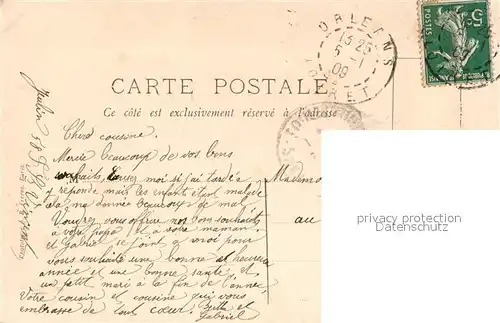 ORLEANS
13 25
5 - 1
09
LOIRET
5c
POSTES
CARTE POSTALE
Ce côté est exclusivement réservé à l'adresse
Chère cousine.
Merci beaucoup de vos bons
souhaits, moi si j'ai tardé a
M Mademo
y reponde mais les enfants étant malade
cela ma donnée beaucoup de mal.
Voudrez vous offire nos bons souhaits
au
à votre papa et a votre maman.
et Gabriel se joint a moi pour
vous souhaité une bonne et heureuse
année et une bonne santé et
un petit mari à la fin de l'année
Votre cousin et cousine qui vous
embrasse de tout cœur. et
Gabriel
privacy protection
watermark